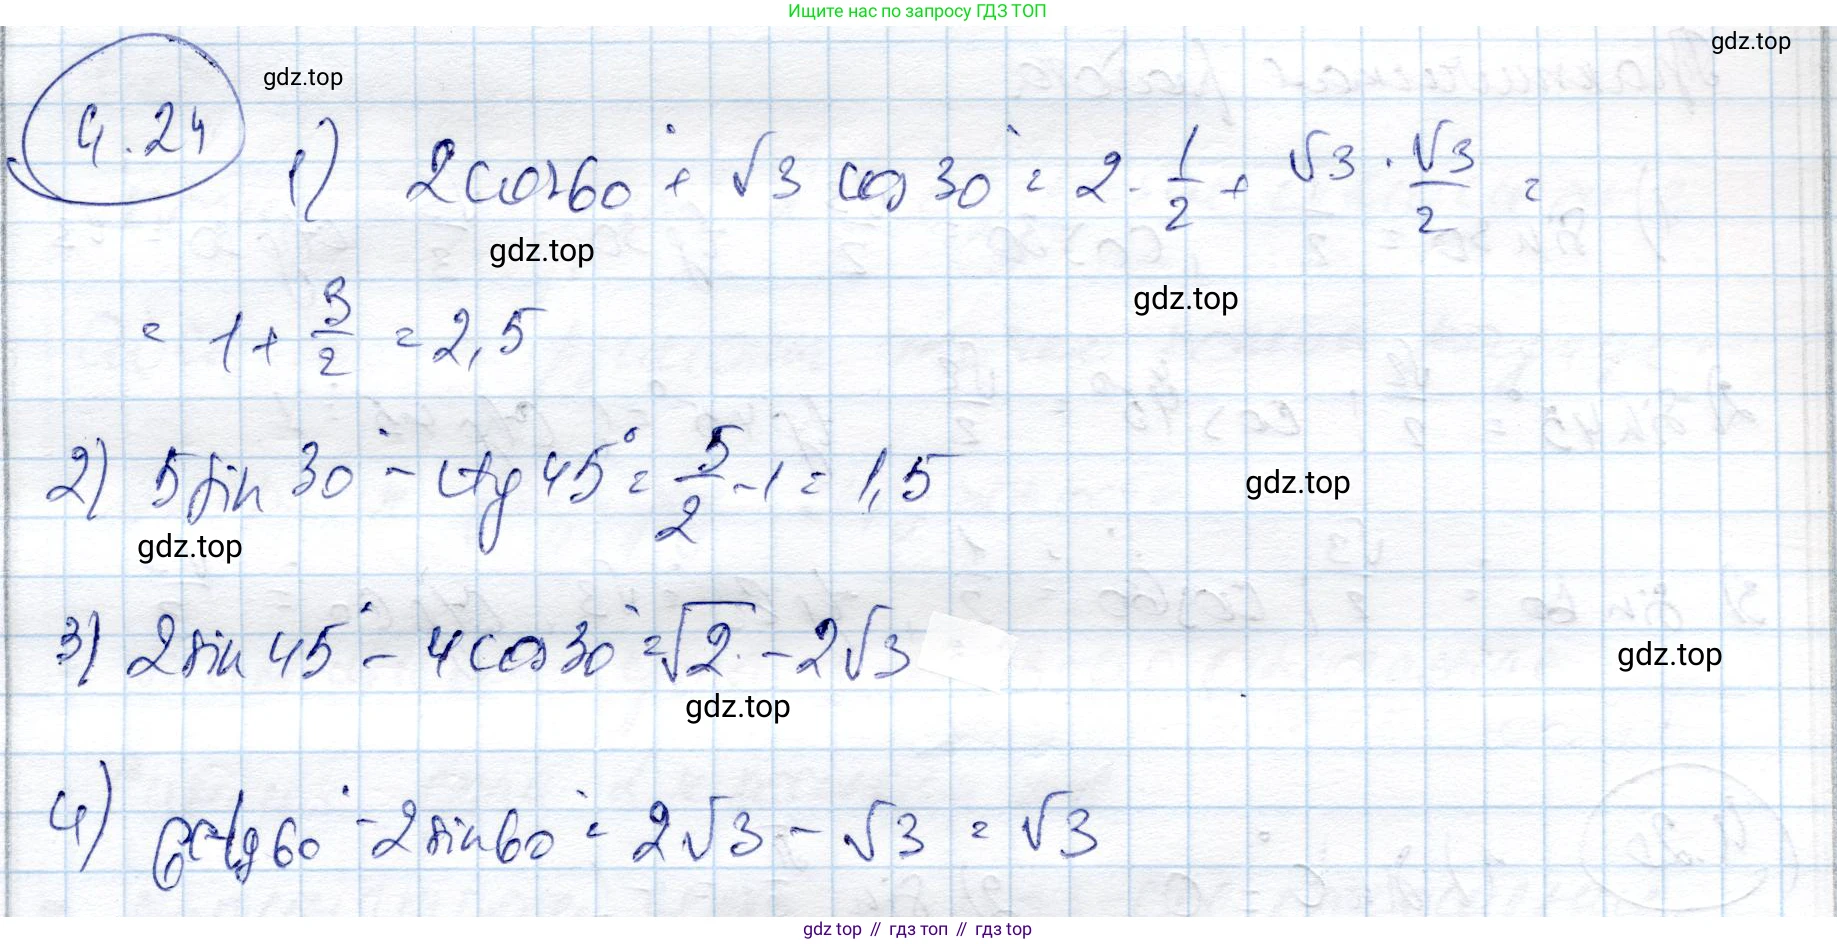 Ищите нас по запросу ГДЗ ТОП
gdz.top
gdz.top
4.24
1) 2cos60° + √3 cos30° = 2·1/2 + √3·√3/2 =
gdz.top
gdz.top
= 1 + 3/2 = 2,5
2) 5sin30° - ctg45° = 5/2 - 1 = 1,5
gdz.top
gdz.top
3) 2sin45° - 4cos30° = √2 - 2√3
gdz.top
gdz.top
4) 6ctg60° - 2sin60° = 2√3 - √3 = √3
gdz top // гдз топ // gdz top